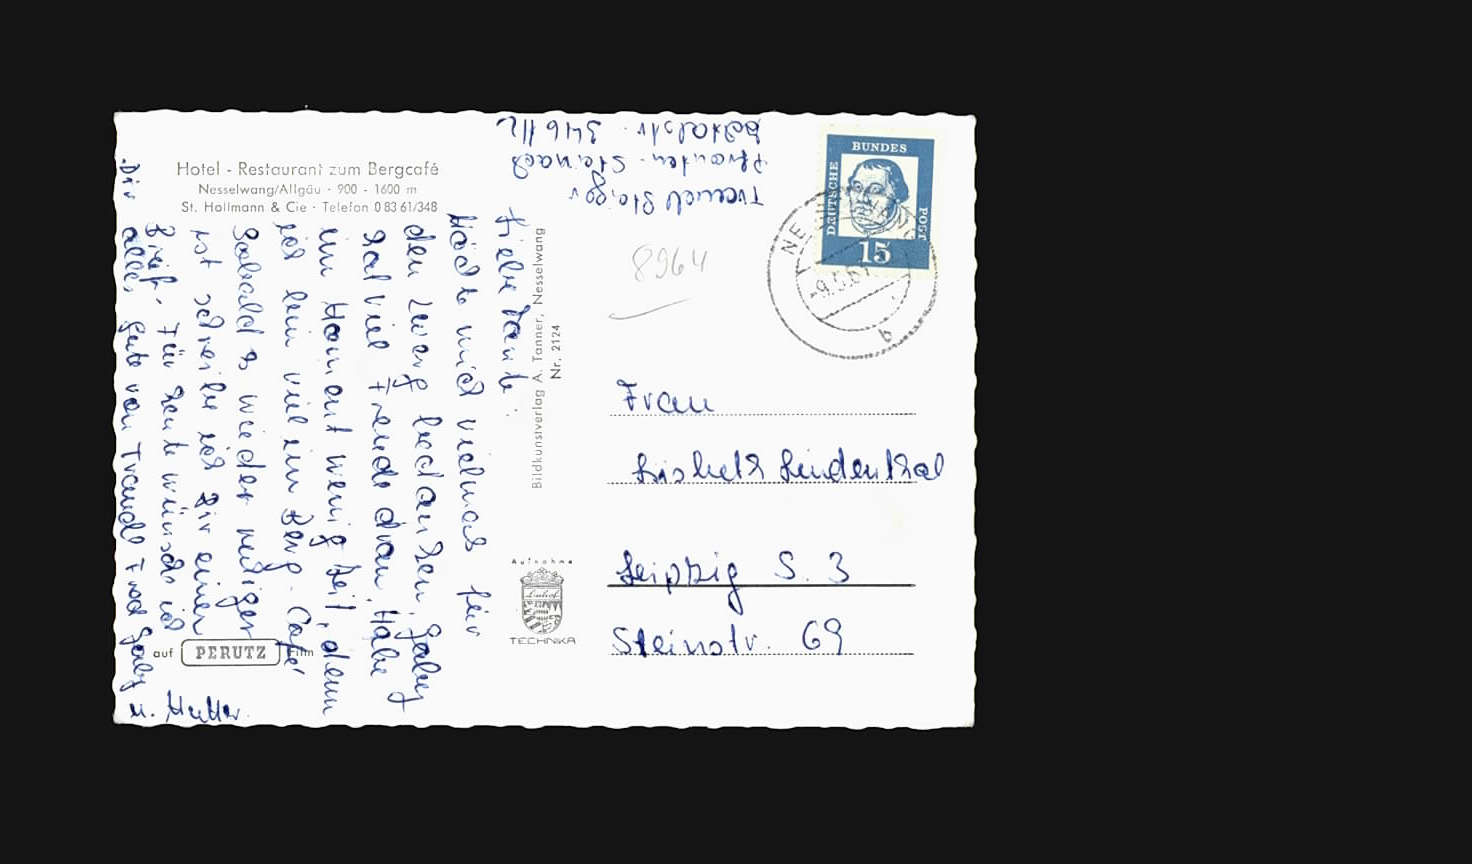 Hotel - Restaurant zum Bergcafé
Nesselwang/Allgäu - 900 - 1600 m
St. Hallmann & Cie - Telefon 0 83 61/348
Traudl Steiger
Pfronten-Steinach
346 1/2
Liebe Tante.
Möchte mich vielmals für
den Zwerg bedanken, Gaby
hat viel Freude dran. Habe
im Moment wenig Zeit, denn
ich bin viel im Berg-Café
Sobald es wieder ruhiger
ist schreibe ich Dir einen
Brief. Für heute wünsche ich
Dir
alles Gute von Traudl Fred Gaby
u. Mutter.
Bildkunstverlag A. Tanner, Nesselwang
Nr. 2124
8964
DEUTSCHE
BUNDES
POST
15
b
Frau
Lisbeth Lindenthal
Leipzig S. 3
Steinstr. 69
Aufnahme
Linhof
TECHNIKA
auf PERUTZ Film